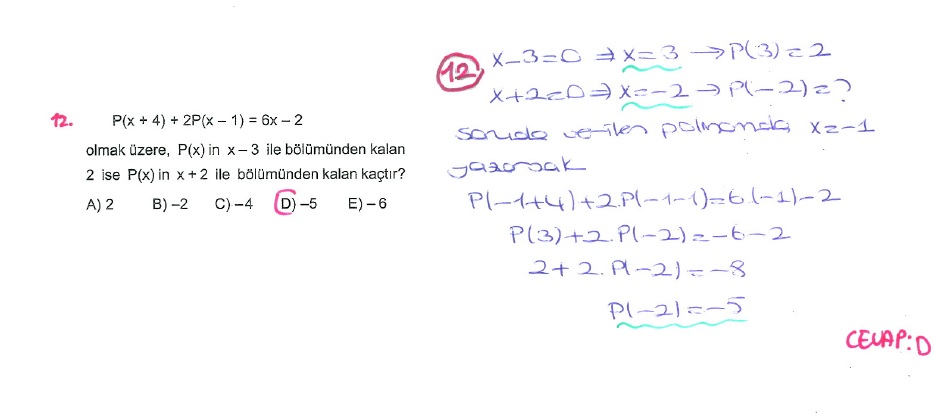 12. P(x + 4) + 2P(x – 1) = 6x – 2
olmak üzere, P(x) in x – 3 ile bölümünden kalan
2 ise P(x) in x + 2 ile bölümünden kalan kaçtır?
A) 2 B) –2 C) –4 D) –5 E) – 6
12) x-3=0 ⇒ x=3 → P(3)=2
x+2=0 ⇒ x=-2 → P(-2)=?
soruda verilen polinomda x=-1
yazarsak
P(-1+4)+2.P(-1-1)=6.(-1)-2
P(3)+2.P(-2)=-6-2
2+2.P(-2)=-8
P(-2)=-5
CEVAP:D